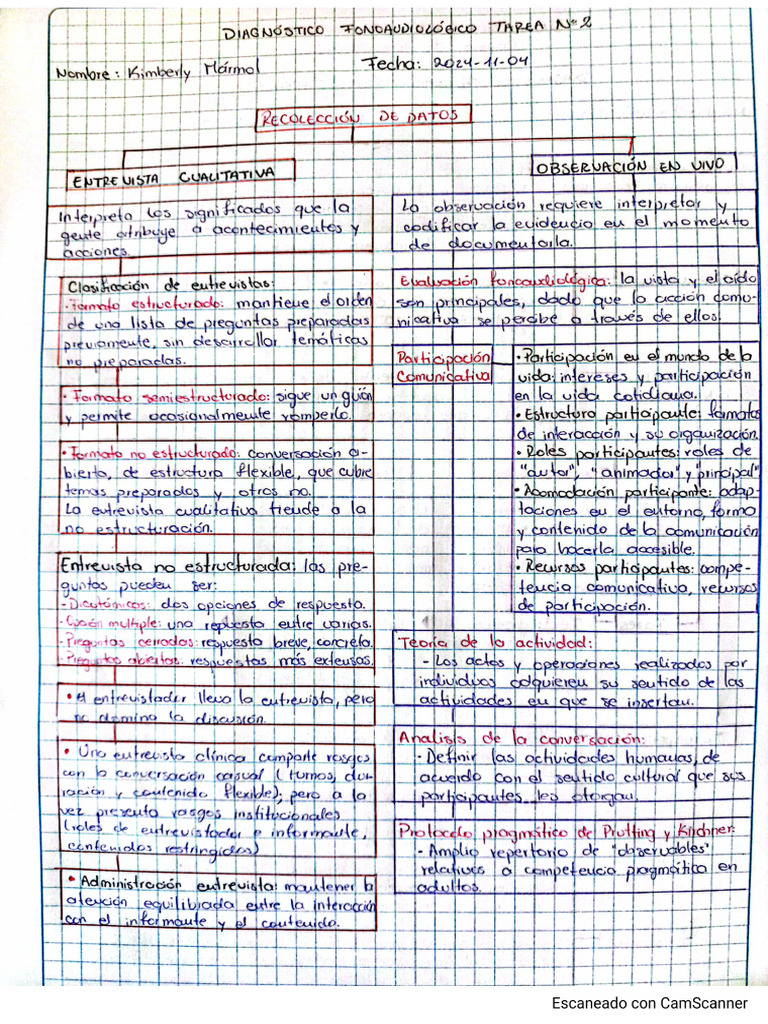 DIAGNÓSTICO FONOAUDIOLÓGICO TAREA Nº2
Nombre: Kimberly Mármol
Fecha: 2024-11-04
RECOLECCIÓN DE DATOS
ENTREVISTA CUALITATIVA
Interpreta los significados que la
gente atribuye a acontecimientos y
acciones.
Clasificación de entrevistas:
• Formato estructurado: mantiene el orden
de una lista de preguntas preparadas
previamente, sin desarrollar temáticas
no preparadas.
• Formato semiestructurado: sigue un guión
y permite ocasionalmente romperlo.
• Formato no estructurado: conversación a-
bierta, de estructura flexible, que cubre
temas preparados y otros no.
La entrevista cualitativa tiende a la
no estructuración.
Entrevista no estructurada: las pre-
guntas pueden ser:
- Dicotómicas: dos opciones de respuesta.
- Opción multiple: una repuesta entre varias.
- Preguntas cerradas: respuesta breve, concreta.
- Preguntas abiertas: respuestas más extensas.
• el entrevistador lleva la entrevista, pero
no domina la discusión.
• Una entrevista clínica comparte rasgos
con la conversación casual (turnos, du-
ración y contenido flexible); pero a la
vez presenta rasgos institucionales
(roles de entrevistador e informante,
contenidos restringidos)
• Administración entrevista: mantener la
atención equilibrada entre la interacción
con el informante y el contenido.
OBSERVACIÓN EN VIVO
La observación requiere interpretar y
codificar la evidencia en el momento
de documentarla.
Evaluación fonoaudiológica: la vista y el oído
son principales, dado que la acción comu-
nicativa se percibe a través de ellos.
Participación
Comunicativa
• Participación en el mundo de la
vida: intereses y participación
en la vida cotidiana.
• Estructura participante: formatos
de interacción y su organización.
• Roles participantes: roles de
"autor", "animador" y "principal"
• Acomodación participante: adap-
taciones en el entorno, forma
y contenido de la comunicación
para hacerla accesible.
• Recursos participantes: compe-
tencia comunicativa, recursos
de participación.
Teoría de la actividad:
- Los actos y operaciones realizados por
individuos adquieren su sentido de las
actividades en que se insertan.
Analisis de la conversación:
- Definir las actividades humanas, de
acuerdo con el sentido cultural que sus
participantes les otorgan.
Protocolo pragmático de Prutting y Kirchner:
- Amplio repertorio de "observables"
relativos a competencia pragmática en
adultos.
Escaneado con CamScanner